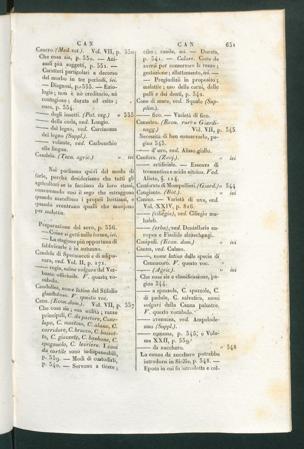 CAN
Cancro. (Med. vet.). Vol. VII, p. 550
Che cosa sia, p. 550. — Ani-
mali più soggetti, p. 551. —
Caratteri particolari a decorso
del morbo in tre periodi, ivi.
— Diagnosi, p. 552. — Ezio-
logia; non è nè creditario, nè
contagioso; durata ed esito;
cura, p. 554.
— degli innesti (Pat. veg.) » 555
— della coda, ved. Lungo.
— dal legno, ved. Carcinoma
del legno (Suppl.).
— volante, ved. Carbonchio
alla lingua.
Candela. (Tecn. agric.) » ivi
Noi parliamo quivi del modo di
farle, perchè desideriamo che tutti gli
agricoltori se le facciano da loro stessi,
consumando così il sego che estraggono
quando macellano i proprii bestiami, o
quando sventrano quelli che muojono
per malattia.
Preparazione del sevo, p. 556.
— Come si getti nelle forme, ivi.
— La stagione più opportuna di
fabbricarle è in autunno.
Candela di Spermaceti e di migno-
vara, ved. Vol. II, p. 271.
— regia, nome volgare del Ver-
basso officinale. V. questo vo-
cabolo.
Candelaia, nome latino del Stilattio
glandoloso. V. questo voc.
Cane. (Econ. rur.). Vol. VII, p. 557
Che cosa sia; sua utilità; razze
principali, C. da pastore, Cane-
lupo, C. mastino, C. alano, C.
corridore, C. bracco, C. bassot-
to, C. giacente, C. barbone, C.
spagnuolo, C. levriere. I cani
da cortile sono indispensabili,
p. 559. — Modi di custodirli,
p. 540. — Servono a tirare;
CAN 651
cibo; canile, ivi — Durata,
p. 541. — Calore. Cura da
aversi per conservare le razze;
gestazione; allattamento, ivi.
— Pregiudizii in proposito;
malattie; uso della carni, delle
pelli e dei denti, p. 542.
Cane di mare, ved. Squalo (Sup-
plim.).
— fico. — Varietà di fico.
Canestro. (Econ. rur. e Giardi-
nagg.) Vol. VII, p. 543
Necessità di ben conservarlo, pa-
gina 543.
— d' oro, ved. Alisso giallo.
Canfora. (Zooj.) » ivi
— artificiale. — Essenza di
trementina e acido nitrico. Ved.
Alisto, § 124.
Canforata di Mompellieri. (Giard.) » 544
Cangiante. (Bot.) » ivi
Canna. — Varietà di uva, ved.
Vol. XXIV, p. 826.
— (ciliegio), ved. Ciliegio ma-
haleb.
— (erba), ved. Dentellaria eu-
ropea e Eisifolio abirschangi.
Canipuli. (Econ. dom.) » ivi
Canna, ved. Calmo.
—, nome latino dalla specie di
Cannacoro. V. questo voc.
— (Agric.) » ivi
Che cosa sia e classificazione, pa-
gina 544.
— a spazzola, C. spazzola, C.
di padule, C. salvatica, nomi
volgari della Canna palustre.
V. questo vocabolo.
— cremnia, ved. Ampelode-
smo (Suppl.).
— comune, p. 546; e Volu-
me XXII, p. 559.
— da zucchero. » 548
La canna da zucchero potrebbe
introdursi in Sicilia, p. 548. —
Epoca in cui fu introdotta e col-